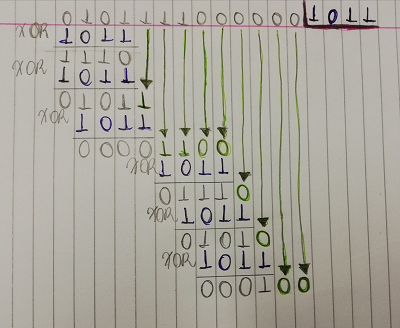 0 1 0 1 1 1 1 0 0 0 0 0 0 1 0 1 1
XOR 1 0 1 1
1 1 1 0
XOR 1 0 1 1
0 1 0 1 1
XOR 1 0 1 1
0 0 0 0 1 1 0 0
XOR 1 0 1 1
0 1 1 1 0
XOR 1 0 1 1
0 1 0 1 0
XOR 1 0 1 1
0 0 0 1 0 0